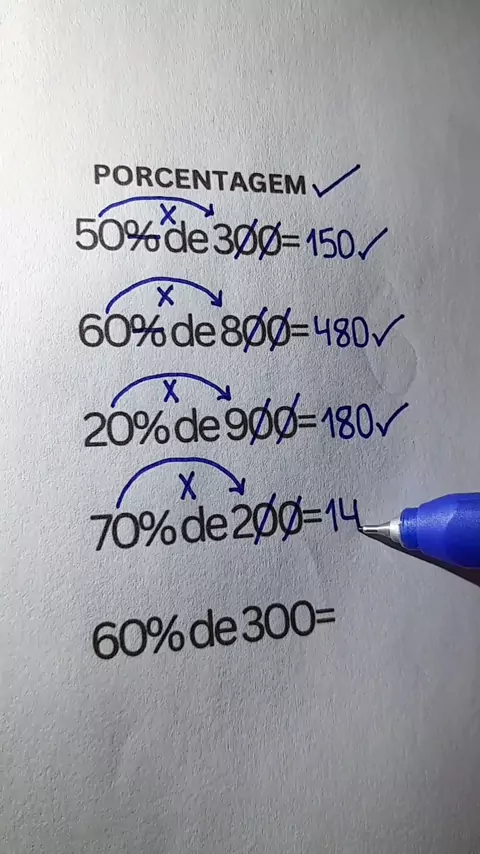 PORCENTAGEM ✓
x
50% de 300= 150 ✓
x
60% de 800= 480 ✓
x
20% de 900= 180 ✓
x
70% de 200= 14
60% de 300=